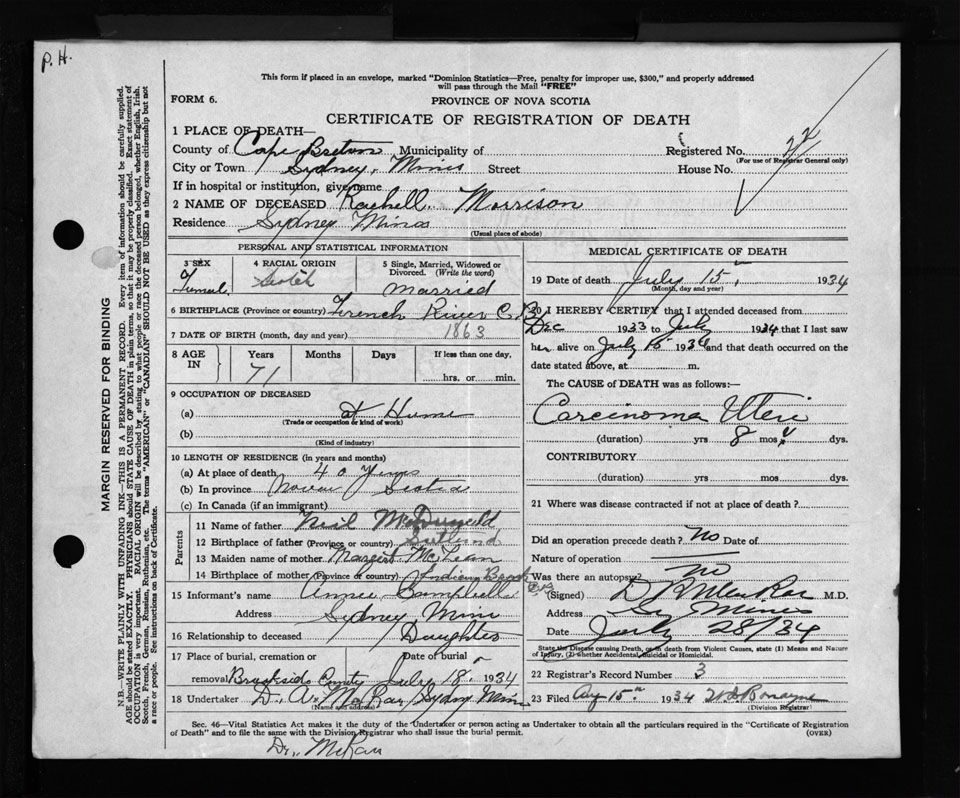 P. H.
This form if placed in an envelope, marked "Dominion Statistics—Free, penalty for improper use, $300," and properly addressed
will pass through the Mail "FREE"
FORM 6.
PROVINCE OF NOVA SCOTIA
CERTIFICATE OF REGISTRATION OF DEATH
1 PLACE OF DEATH—
County of Cape Breton Municipality of Registered No. 22
(For use of Registrar General only)
City or Town Sydney, Mines Street House No.
If in hospital or institution, give name
2 NAME OF DECEASED Rachell Morrison
Residence Sydney Mines
(Usual place of abode)
PERSONAL AND STATISTICAL INFORMATION
3 SEX
Femal
4 RACIAL ORIGIN
Scotch
5 Single, Married, Widowed or
Divorced. (Write the word)
Married
6 BIRTHPLACE (Province or country) French River C.B.
7 DATE OF BIRTH (month, day and year) 1863
8 AGE IN
Years Months Days If less than one day,
71 hrs. or min.
9 OCCUPATION OF DECEASED
(a) at Hume
(Trade or occupation or kind of work)
(b)
(Kind of industry)
10 LENGTH OF RESIDENCE (in years and months)
(a) At place of death 40 Years
(b) In province Novia Scotia
(c) In Canada (if an immigrant)
Parents
11 Name of father Neil
12 Birthplace of father (Province or country)
13 Maiden name of mother Margert McLean
14 Birthplace of mother (Province or country) Indian Brook
15 Informant's name Annie Campbell
Address Sydney Mine
16 Relationship to deceased Daughter
17 Place of burial, cremation or Date of burial
removal Brookside July 18 1934
18 Undertaker D. A. McRae Sydney Mine
(Name and address)
MEDICAL CERTIFICATE OF DEATH
19 Date of death July 15, 1934
(Month, day and year)
20 I HEREBY CERTIFY that I attended deceased from
Dec 1933 to July 1934 that I last saw
her alive on July 15 1934 and that death occurred on the
date stated above, at m.
The CAUSE of DEATH was as follows:—
Carcinoma Uteri
(duration) yrs 8 mos. dys.
CONTRIBUTORY
(duration) yrs mos. dys.
21 Where was disease contracted if not at place of death?
Did an operation precede death? No Date of
Nature of operation
Was there an autopsy? no
(Signed) M.D.
Address Sy Mines
Date July 28/34
State the Disease causing Death, or in death from Violent Causes, state (1) Means and Nature
of Injury, (2) whether Accidental, Suicidal or Homicidal.
22 Registrar's Record Number 3
23 Filed Aug 15 1934
(Division Registrar)
Sec. 46—Vital Statistics Act makes it the duty of the Undertaker or person acting as Undertaker to obtain all the particulars required in the "Certificate of Registration
of Death" and to file same with the Division Registrar who shall issue the burial permit. (OVER)
Dr. McRae
MARGIN RESERVED FOR BINDING
N.B.—WRITE PLAINLY WITH UNFADING INK—THIS IS A PERMANENT RECORD. Every item of information should be carefully supplied.
AGE should be stated EXACTLY. PHYSICIANS should STATE CAUSE OF DEATH in plain terms, so that it may be properly classified. Exact statement of
OCCUPATION is very important. RACIAL ORIGIN will be described by stating to what people or race the deceased person belonged, whether English, Irish,
Scotch, French, German, Russian, Ruthenian, etc. The terms "AMERICAN" or "CANADIAN" SHOULD NOT BE USED as they express citizenship but not
a race or people. See instructions on back of Certificate.